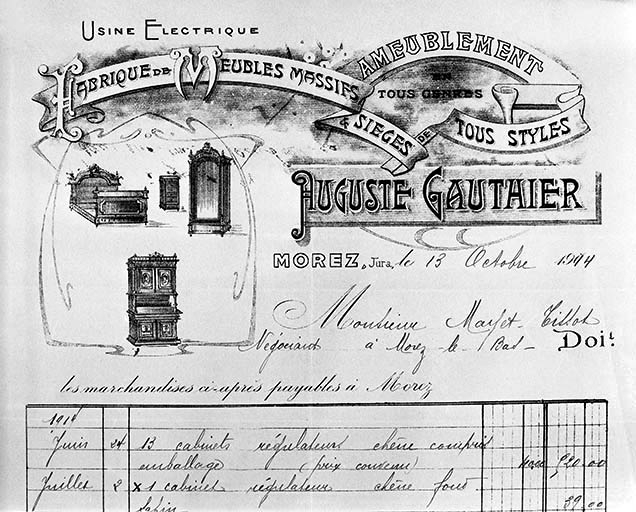 USINE ELECTRIQUE
FABRIQUE DE MEUBLES MASSIFS
AMEUBLEMENT
EN
TOUS GENRES
& SIÈGES DE TOUS STYLES
AUGUSTE GAUTHIER
MOREZ, Jura, le 13 Octobre 1914
Monsieur
Négociant à Morez-le-Bas- Doit
les marchandises ci-après payables à Morez
1914
Juin 24 13 cabinets régulateur chêne compris
emballage (prix convenu) 520.00
Juillet 2 x 1 cabinet régulateur chêne fond
Sapin 39.00